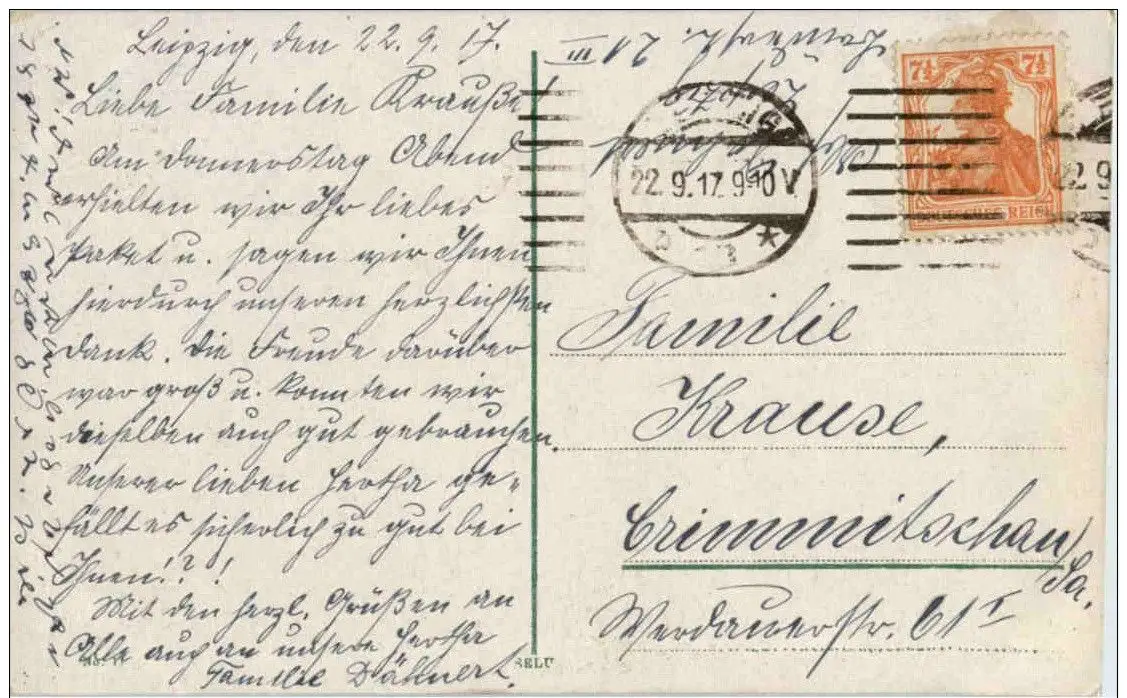 Leipzig, den 22.9.17.
Liebe Familie Krauße!
Am Donnerstag Abend
erhielten wir Ihr liebes
Paket u. sagen wir Ihnen
hierdurch unseren herzlichsten
Dank. Die Freude darüber
war groß u. konnten wir
dieselben auch gut gebrauchen.
Unserer lieben Hertha ge-
fällt es sicherlich zu gut bei
Ihnen!?!
Mit den herzl. Grüßen an
Alle auch an unsere Hertha
Familie Dähnert.
Abs. Dähnert
Leipzig
III
22.9.17. 9-10 V.
7½ 7½
DEUTSCHES REICH
Familie
Krause,
Crimmitschau
Sa.
Werdauerstr. 61 I